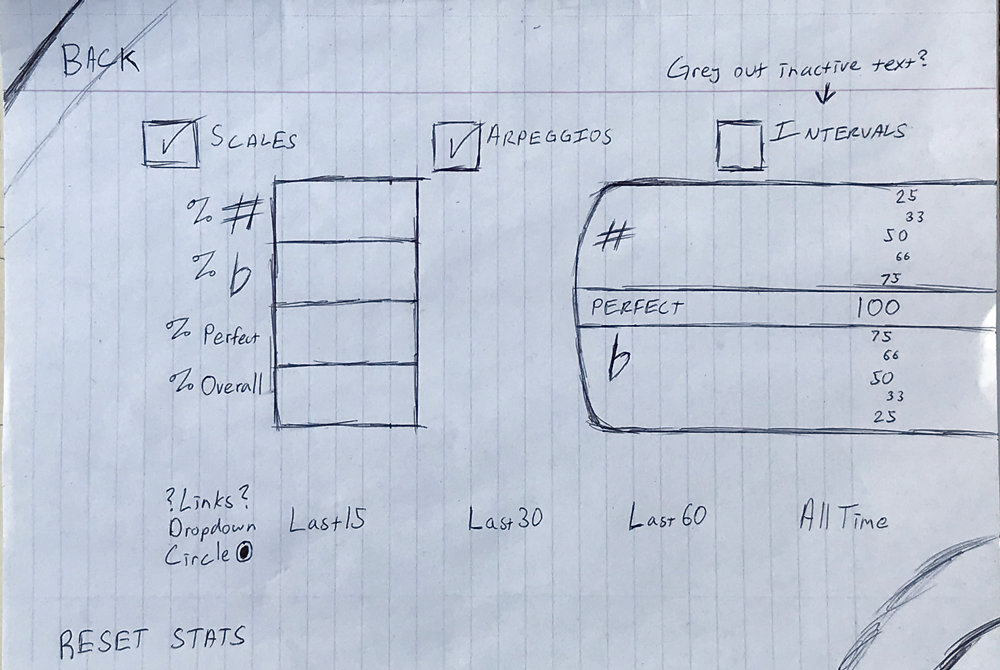 BACK
Grey out inactive text?
↓
✓ SCALES
✓ ARPEGGIOS
INTERVALS
% #
% b
% Perfect
% Overall
#
25
33
50
66
75
PERFECT 100
b
75
66
50
33
25
?Links?
Dropdown
Circle
Last 15
Last 30
Last 60
All Time
RESET STATS